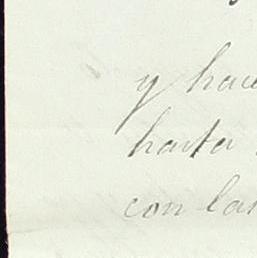 y hace
hasta
con las